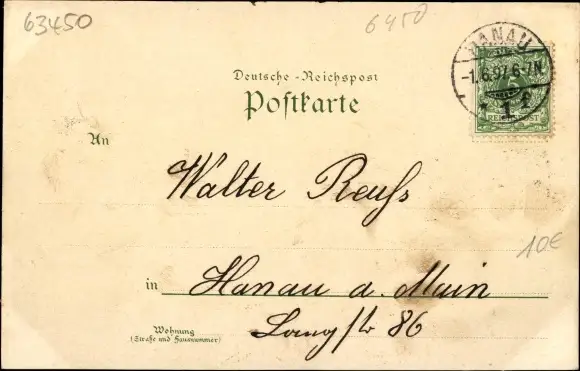 63450
6450
HANAU
-1.6.97.6-7N.
* 1 f
REICHSPOST
Deutsche-Reichspost
Postkarte
An
Walter Reuß
10€
in Hanau a. Main
Wohnung
(Straße und Hausnummer)
Langstr 86